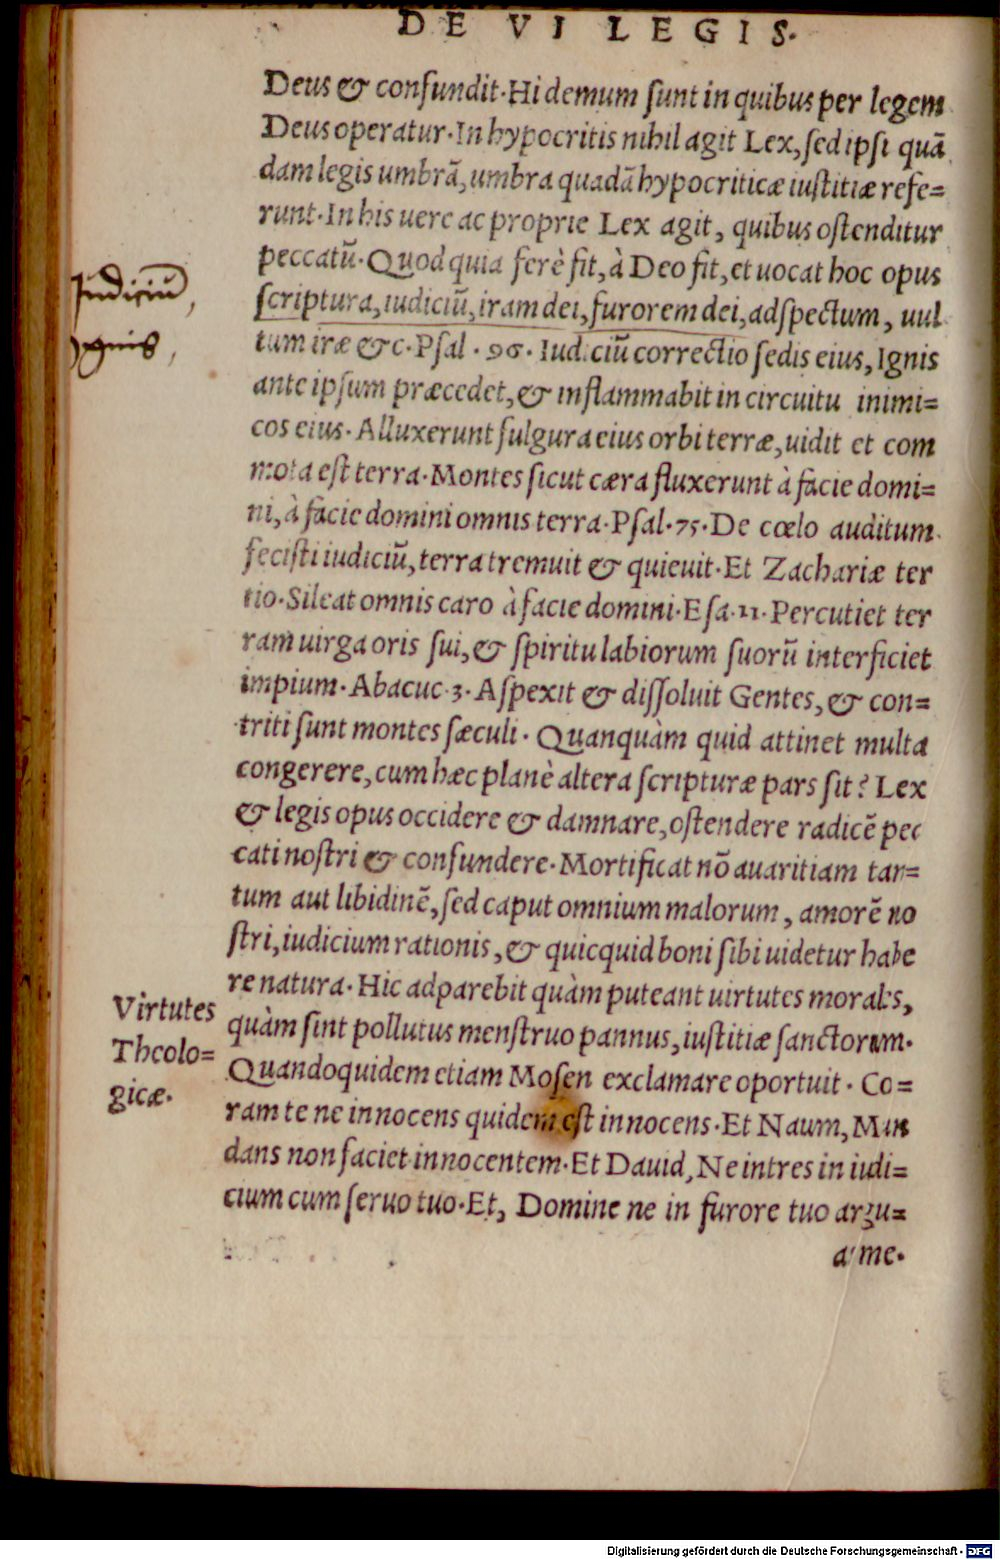 DE VI LEGIS.
Deus & confundit. Hi demum ſunt in quibus per legem
Deus operatur. In hypocritis nihil agit Lex, ſed ipſi quã
dam legis umbrã, umbra quadã hypocriticæ iuſtitiæ refe=
runt. In his uere ac proprie Lex agit, quibus oſtenditur
peccatũ. Quod quia ferè fit, à Deo fit, et uocat hoc opus
ſcriptura, iudiciũ, iram dei, furorem dei, adſpectum, uul
Judiciũ,
tum iræ &c. Pſal. 96. Iudiciũ correctio ſedis eius, Ignis
ygnis,
ante ipſum præcedet, & inflammabit in circuitu inimi=
cos eius. Alluxerunt fulgura eius orbi terræ, uidit et com
mota eſt terra. Montes ſicut cæra fluxerunt à facie domi=
ni, à facie domini omnis terra. Pſal. 75. De cœlo auditum
feciſti iudiciũ, terra tremuit & quieuit. Et Zachariæ ter
tio. Sileat omnis caro à facie domini. Eſa. 11. Percutiet ter
ram uirga oris ſui, & ſpiritu labiorum ſuorũ interficiet
impium. Abacuc. 3. Aſpexit & diſſoluit Gentes, & con=
triti ſunt montes ſæculi. Quanquàm quid attinet multa
congerere, cum hæc planè altera ſcripturæ pars ſit? Lex
& legis opus occidere & damnare, oſtendere radicẽ pec
cati noſtri & confundere. Mortificat nõ auaritiam tan=
tum aut libidinẽ, ſed caput omnium malorum, amorẽ no
ſtri, iudicium rationis, & quicquid boni ſibi uidetur habe
re natura. Hic adparebit quàm puteant uirtutes morales,
Virtutes
Theolo=
gicæ.
quàm ſint pollutus menſtruo pannus, iuſtitiæ ſanctorum.
Quandoquidem etiam Moſen exclamare oportuit. Co=
ram te ne innocens quidem eſt innocens. Et Naum, Mun
dans non faciet innocentem. Et Dauid, Ne intres in iudi=
cium cum ſeruo tuo. Et, Domine ne in furore tuo argu=
as me.
Digitalisierung gefördert durch die Deutsche Forschungsgemeinschaft - DFG